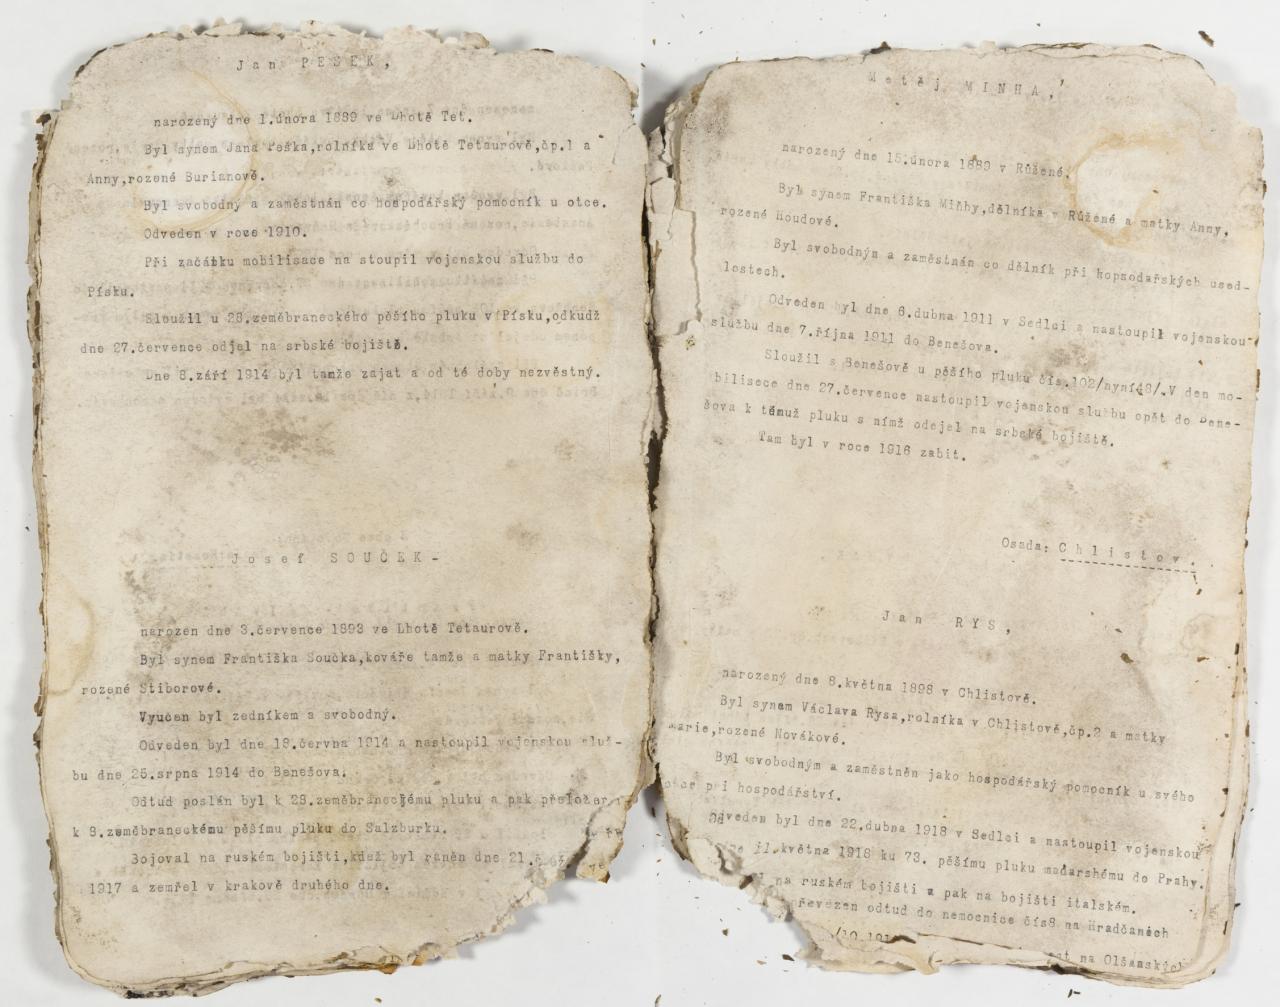 Jan PEŠEK,
narozený dne 1.února 1889 ve Lhotě Tet.
Byl synem Jana Peška,rolníka ve Lhotě Tetaurově,čp.1 a
Anny,rozené Burianově.
Byl svobodný a zaměstnán co hospodářský pomocník u otce.
Odveden v roce 1910.
Při začátku mobilisace na stoupil vojenskou službu do
Písku.
Sloužil u 28.zeměbraneckého pěšího pluku v Písku,odkudž
dne 27.července odjel na srbské bojiště.
Dne 8.září 1914 byl tamže zajat a od té doby nezvěstný.
Josef SOUČEK-
narozen dne 3.července 1893 ve Lhotě Tetaurově.
Byl synem Františka Součka,kováře tamže a matky Františky,
rozené Stiborové.
Vyučen byl zedníkem a svobodný.
Odveden byl dne 18.června 1914 a nastoupil vojenskou služ-
bu dne 25.srpna 1914 do Benešova.
Odtud poslán byl k 28.zeměbraneckému pluku a pak přeložen
k 8.zeměbraneckému pěšímu pluku do Salzburku.
Bojoval na ruském bojišti,kdež byl raněn dne 21.
1917 a zemřel v krakově druhého dne.
Matěj MINHA,
narozený dne 15.února 1889 v Růžené.
Byl synem Františka Miňhy,dělníka v Růžené a matky Anny,
rozené Houdové.
Byl svobodným a zaměstnán co dělník při hopsodařských used-
lostech.
Odveden byl dne 6.dubna 1911 v Sedlci a nastoupil vojenskou
službu dne 7.října 1911 do Benešova.
Sloužil s Benešově u pěšího pluku čís.102/nyní48/.V den mo-
bilisece dne 27.července nastoupil vojenskou službu opět do Bene-
šova k témuž pluku s nímž odejel na srbské bojiště.
Tam byl v roce 1916 zabit.
Osada: Chlistov.
Jan RYS,
narozený dne 8.května 1898 v Chlistově.
Byl synem Václava Rysa,rolníka v Chlistově,čp.2 a matky
Marie,rozené Novákové.
Byl svobodným a zaměstněn jako hospodářský pomocník u svého
otce při hospodářství.
Odveden byl dne 22.dubna 1918 v Sedlci a nastoupil vojenskou
dne 11.května 1918 ku 73. pěšímu pluku maďarshému do Prahy.
na ruském bojišti a pak na bojišti italském.
převezen odtud do nemocnice čís8 na Hradčanech
na Olšanských